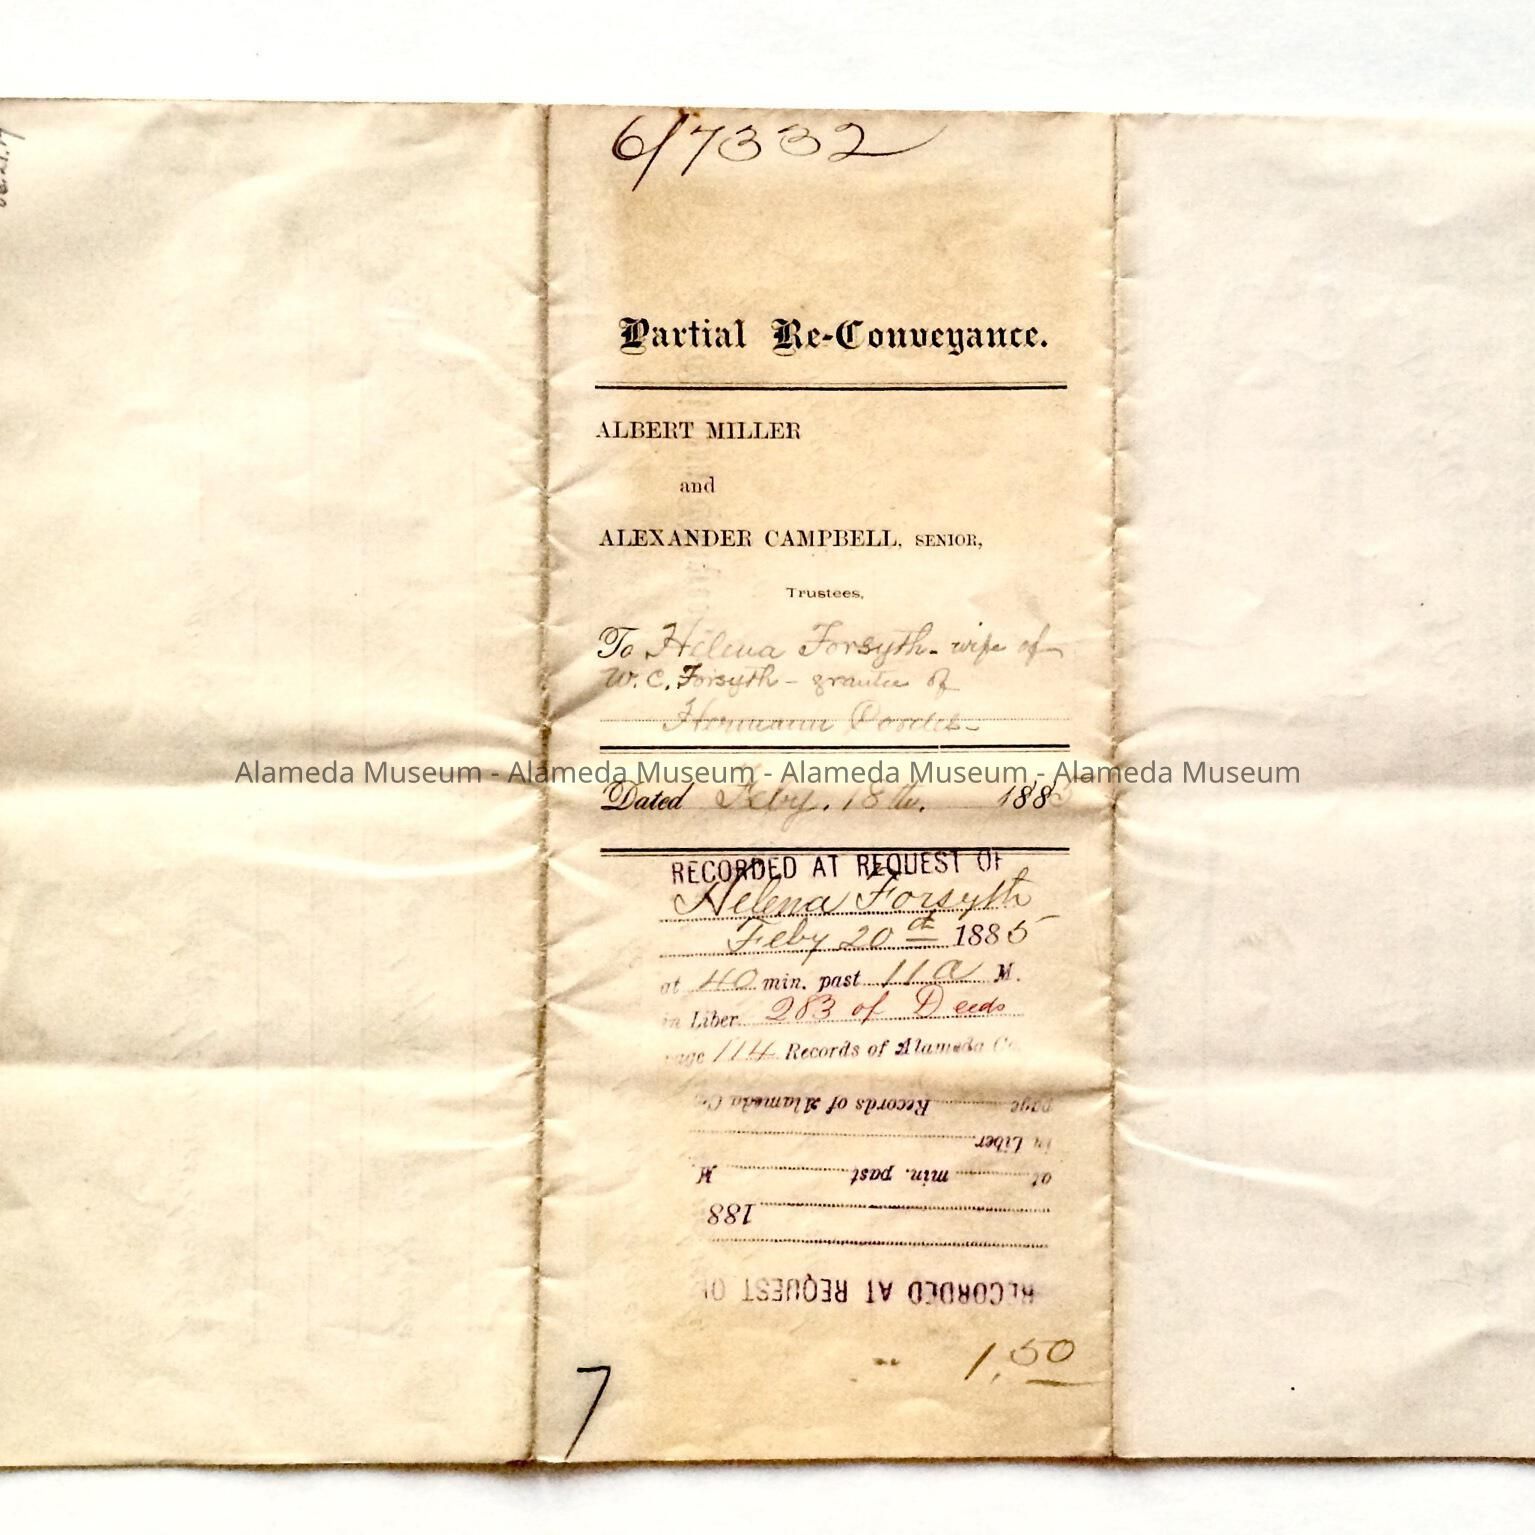 6/7332
Partial Re-Conveyance.
ALBERT MILLER
and
ALEXANDER CAMPBELL, SENIOR,
Trustees,
To Helena Forsyth - wife of
W. C. Forsyth - grantee of
Hermann Cordes -
Alameda Museum - Alameda Museum - Alameda Museum - Alameda Museum
Dated Feby. 18th. 1885
RECORDED AT REQUEST OF
Helena Forsyth
Feby 20th 1885
at 40 min. past 11 a M.
in Liber 283 of Deeds
page 114 Records of Alameda Co
page Records of Alameda Co
in Liber
at min. past M
188
RECORDED AT REQUEST OF
1.50
7